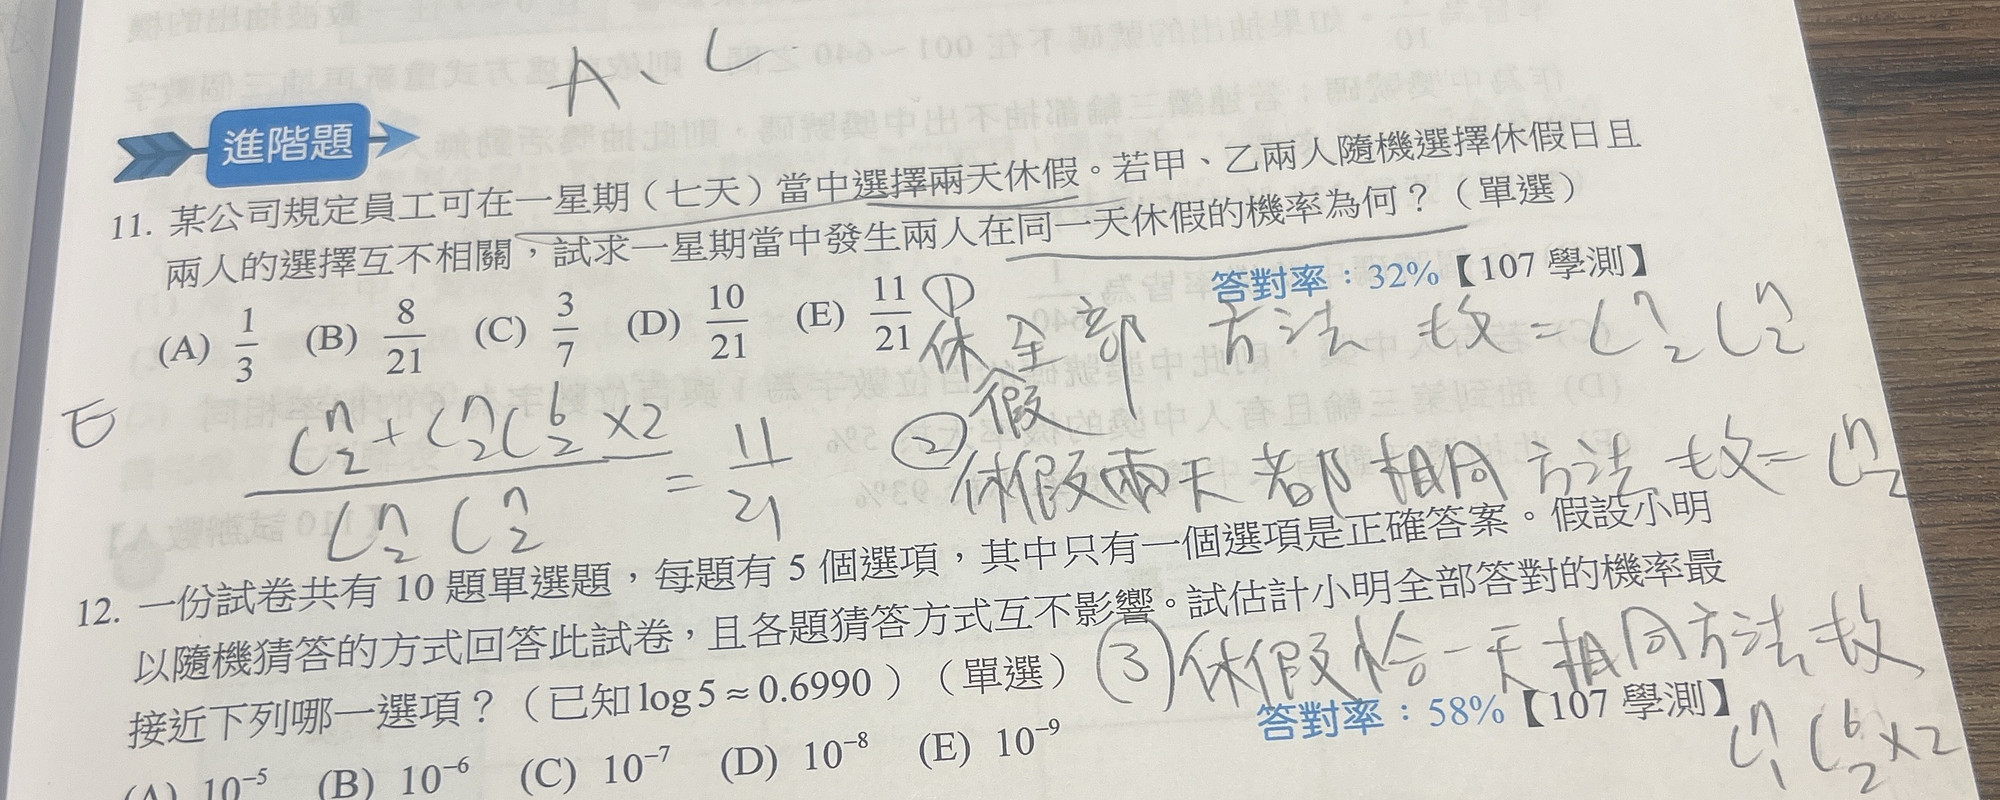 A、C
進階題
11. 某公司規定員工可在一星期（七天）當中選擇兩天休假。若甲、乙兩人隨機選擇休假日且
兩人的選擇互不相關，試求一星期當中發生兩人在同一天休假的機率為何？（單選）
答對率：32%【107 學測】
(A) 1/3 (B) 8/21 (C) 3/7 (D) 10/21 (E) 11/21
① 休假全部方法數 = C⁷₂ C⁷₂
E
(C⁷₂ + C⁷₂C⁶₂×2) / (C⁷₂ C⁷₂) = 11/21
② 休假兩天都相同方法數 = C⁷₂
12. 一份試卷共有 10 題單選題，每題有 5 個選項，其中只有一個選項是正確答案。假設小明
以隨機猜答的方式回答此試卷，且各題猜答方式互不影響。試估計小明全部答對的機率最
接近下列哪一選項？（已知 log 5 ≈ 0.6990）（單選）
③ 休假恰一天相同方法數
C⁷₁ C⁶₂×2
答對率：58%【107 學測】
(A) 10⁻⁵ (B) 10⁻⁶ (C) 10⁻⁷ (D) 10⁻⁸ (E) 10⁻⁹